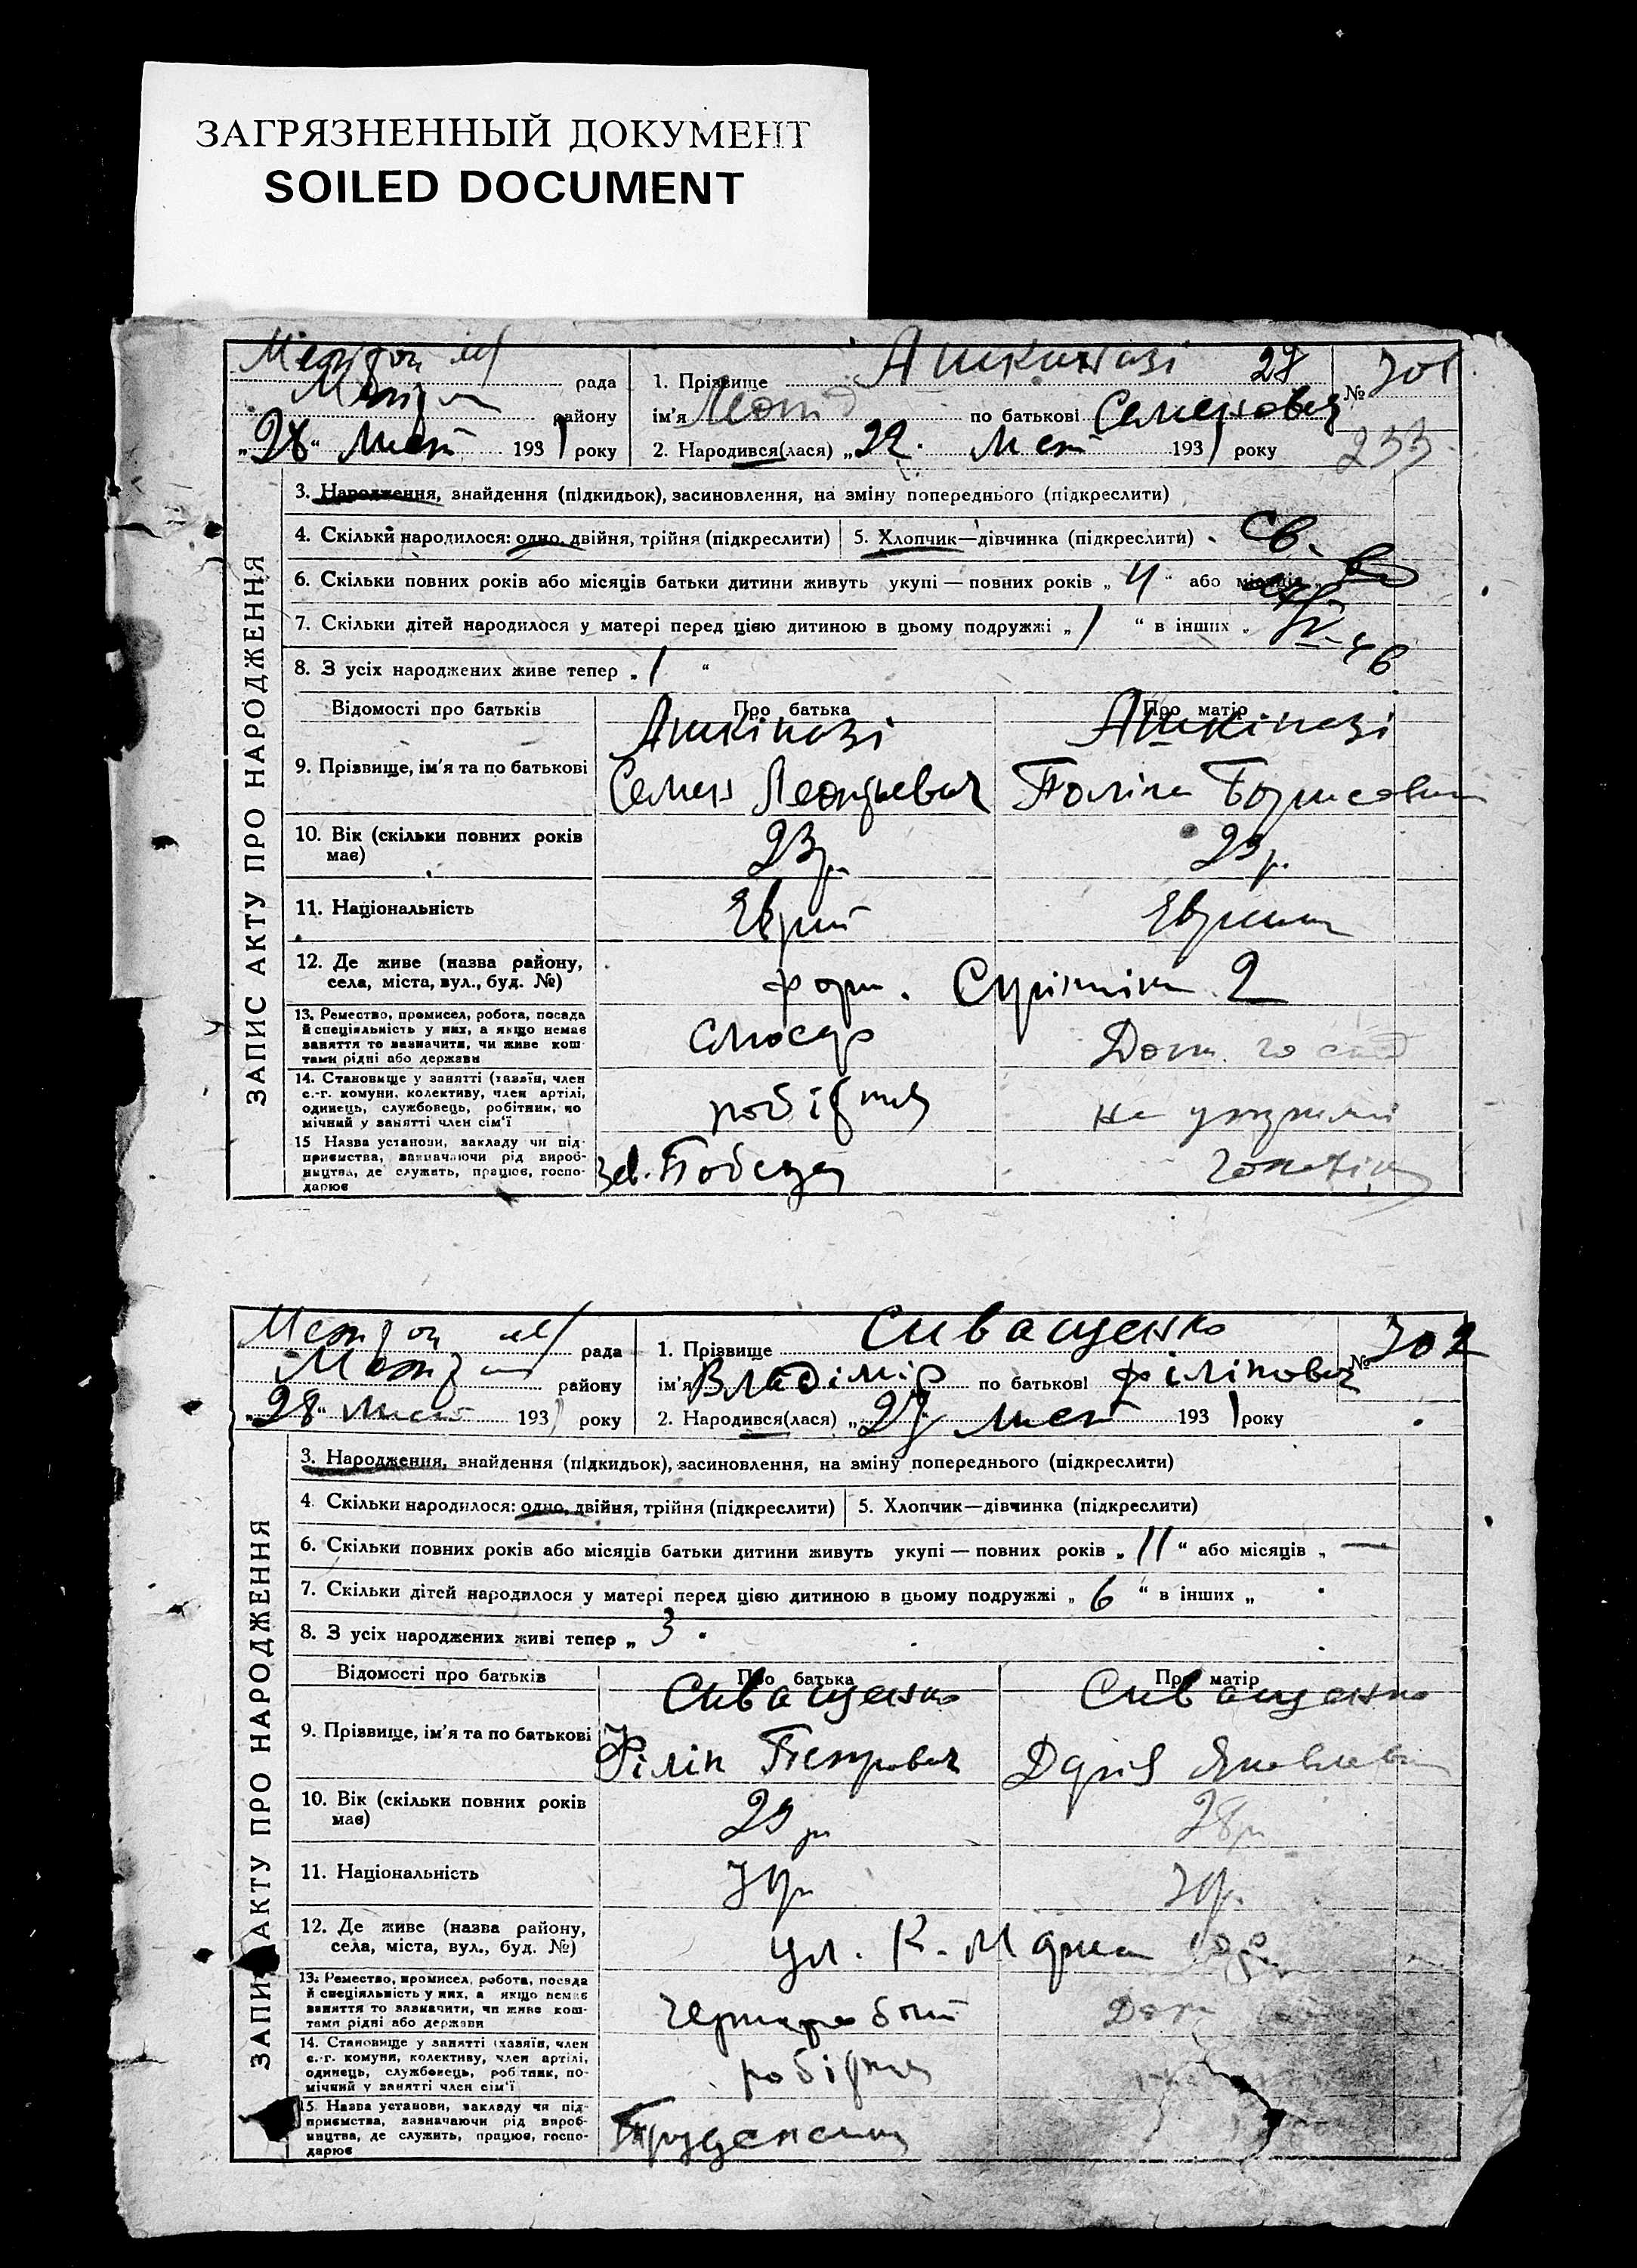 ЗАГРЯЗНЕННЫЙ ДОКУМЕНТ
SOILED DOCUMENT
ЗАПИС АКТУ ПРО НАРОДЖЕННЯ
рада
району
„28“ 1931 року
1. Прізвище Ашкинази 28
ім'я по батькові Семенович
2. Народився(лася) „22. 1931 року
№ 701
233
3. Народження, знайдення (підкидьок), засиновлення, на зміну попереднього (підкреслити)
4. Скільки народилося: одно, двійня, трійня (підкреслити)
5. Хлопчик—дівчинка (підкреслити)
св.
6. Скільки повних років або місяців батьки дитини живуть укупі — повних років „4“ або місяців „
7. Скільки дітей народилося у матері перед цією дитиною в цьому подружжі „1“ в інших „
8. З усіх народжених живе тепер „1“
Відомості про батьків
Про батька
Про матір
9. Прізвище, ім'я та по батькові
Ашкіназі
Семен Леонтьевич
Ашкіназі
Поліна Борисовна
10. Вік (скільки повних років має)
23 р.
23 р.
11. Національність
Еврей
12. Де живе (назва району, села, міста, вул., буд. №)
2
13. Ремество, промисел, робота, посада й спеціяльність у них, а якщо немає заняття то зазначити, чи живе коштами рідні або держави
Слюсар
14. Становище у занятті (хазяїн, член с.-г. комуни, колективу, член артілі, одинець, службовець, робітник, помічний у занятті член сім'ї
робітник
на
15 Назва установи, закладу чи підприємства, зазначаючи рід виробництва, де служить, працює, господарює
Зав. Победа
ЗАПИС АКТУ ПРО НАРОДЖЕННЯ
рада
району
„28“ 1931 року
1. Прізвище Сиващенко
ім'я Владімір по батькові Філіпович
2. Народився(лася) „27“ 1931 року
№ 702
3. Народження, знайдення (підкидьок), засиновлення, на зміну попереднього (підкреслити)
4. Скільки народилося: одно, двійня, трійня (підкреслити)
5. Хлопчик—дівчинка (підкреслити)
6. Скільки повних років або місяців батьки дитини живуть укупі — повних років „11“ або місяців „—
7. Скільки дітей народилося у матері перед цією дитиною в цьому подружжі „6“ в інших „
8. З усіх народжених живі тепер „3
Відомості про батьків
Про батька
Про матір
9. Прізвище, ім'я та по батькові
Сиващенко
Філіп Петрович
Сиващенко
Дарія Яковлевна
10. Вік (скільки повних років має)
29 р
28 р
11. Національність
Укр
Укр.
12. Де живе (назва району, села, міста, вул., буд. №)
ул. К. Маркса
13. Ремество, промисел, робота, посада й спеціяльність у них, а якщо немає заняття то зазначити, чи живе коштами рідні або держави
Дом
14. Становище у занятті (хазяїн, член с.-г. комуни, колективу, член артілі, одинець, службовець, робітник, помічний у занятті член сім'ї
робітник
15. Назва установи, закладу чи підприємства, зазначаючи рід виробництва, де служить, працює, господарює